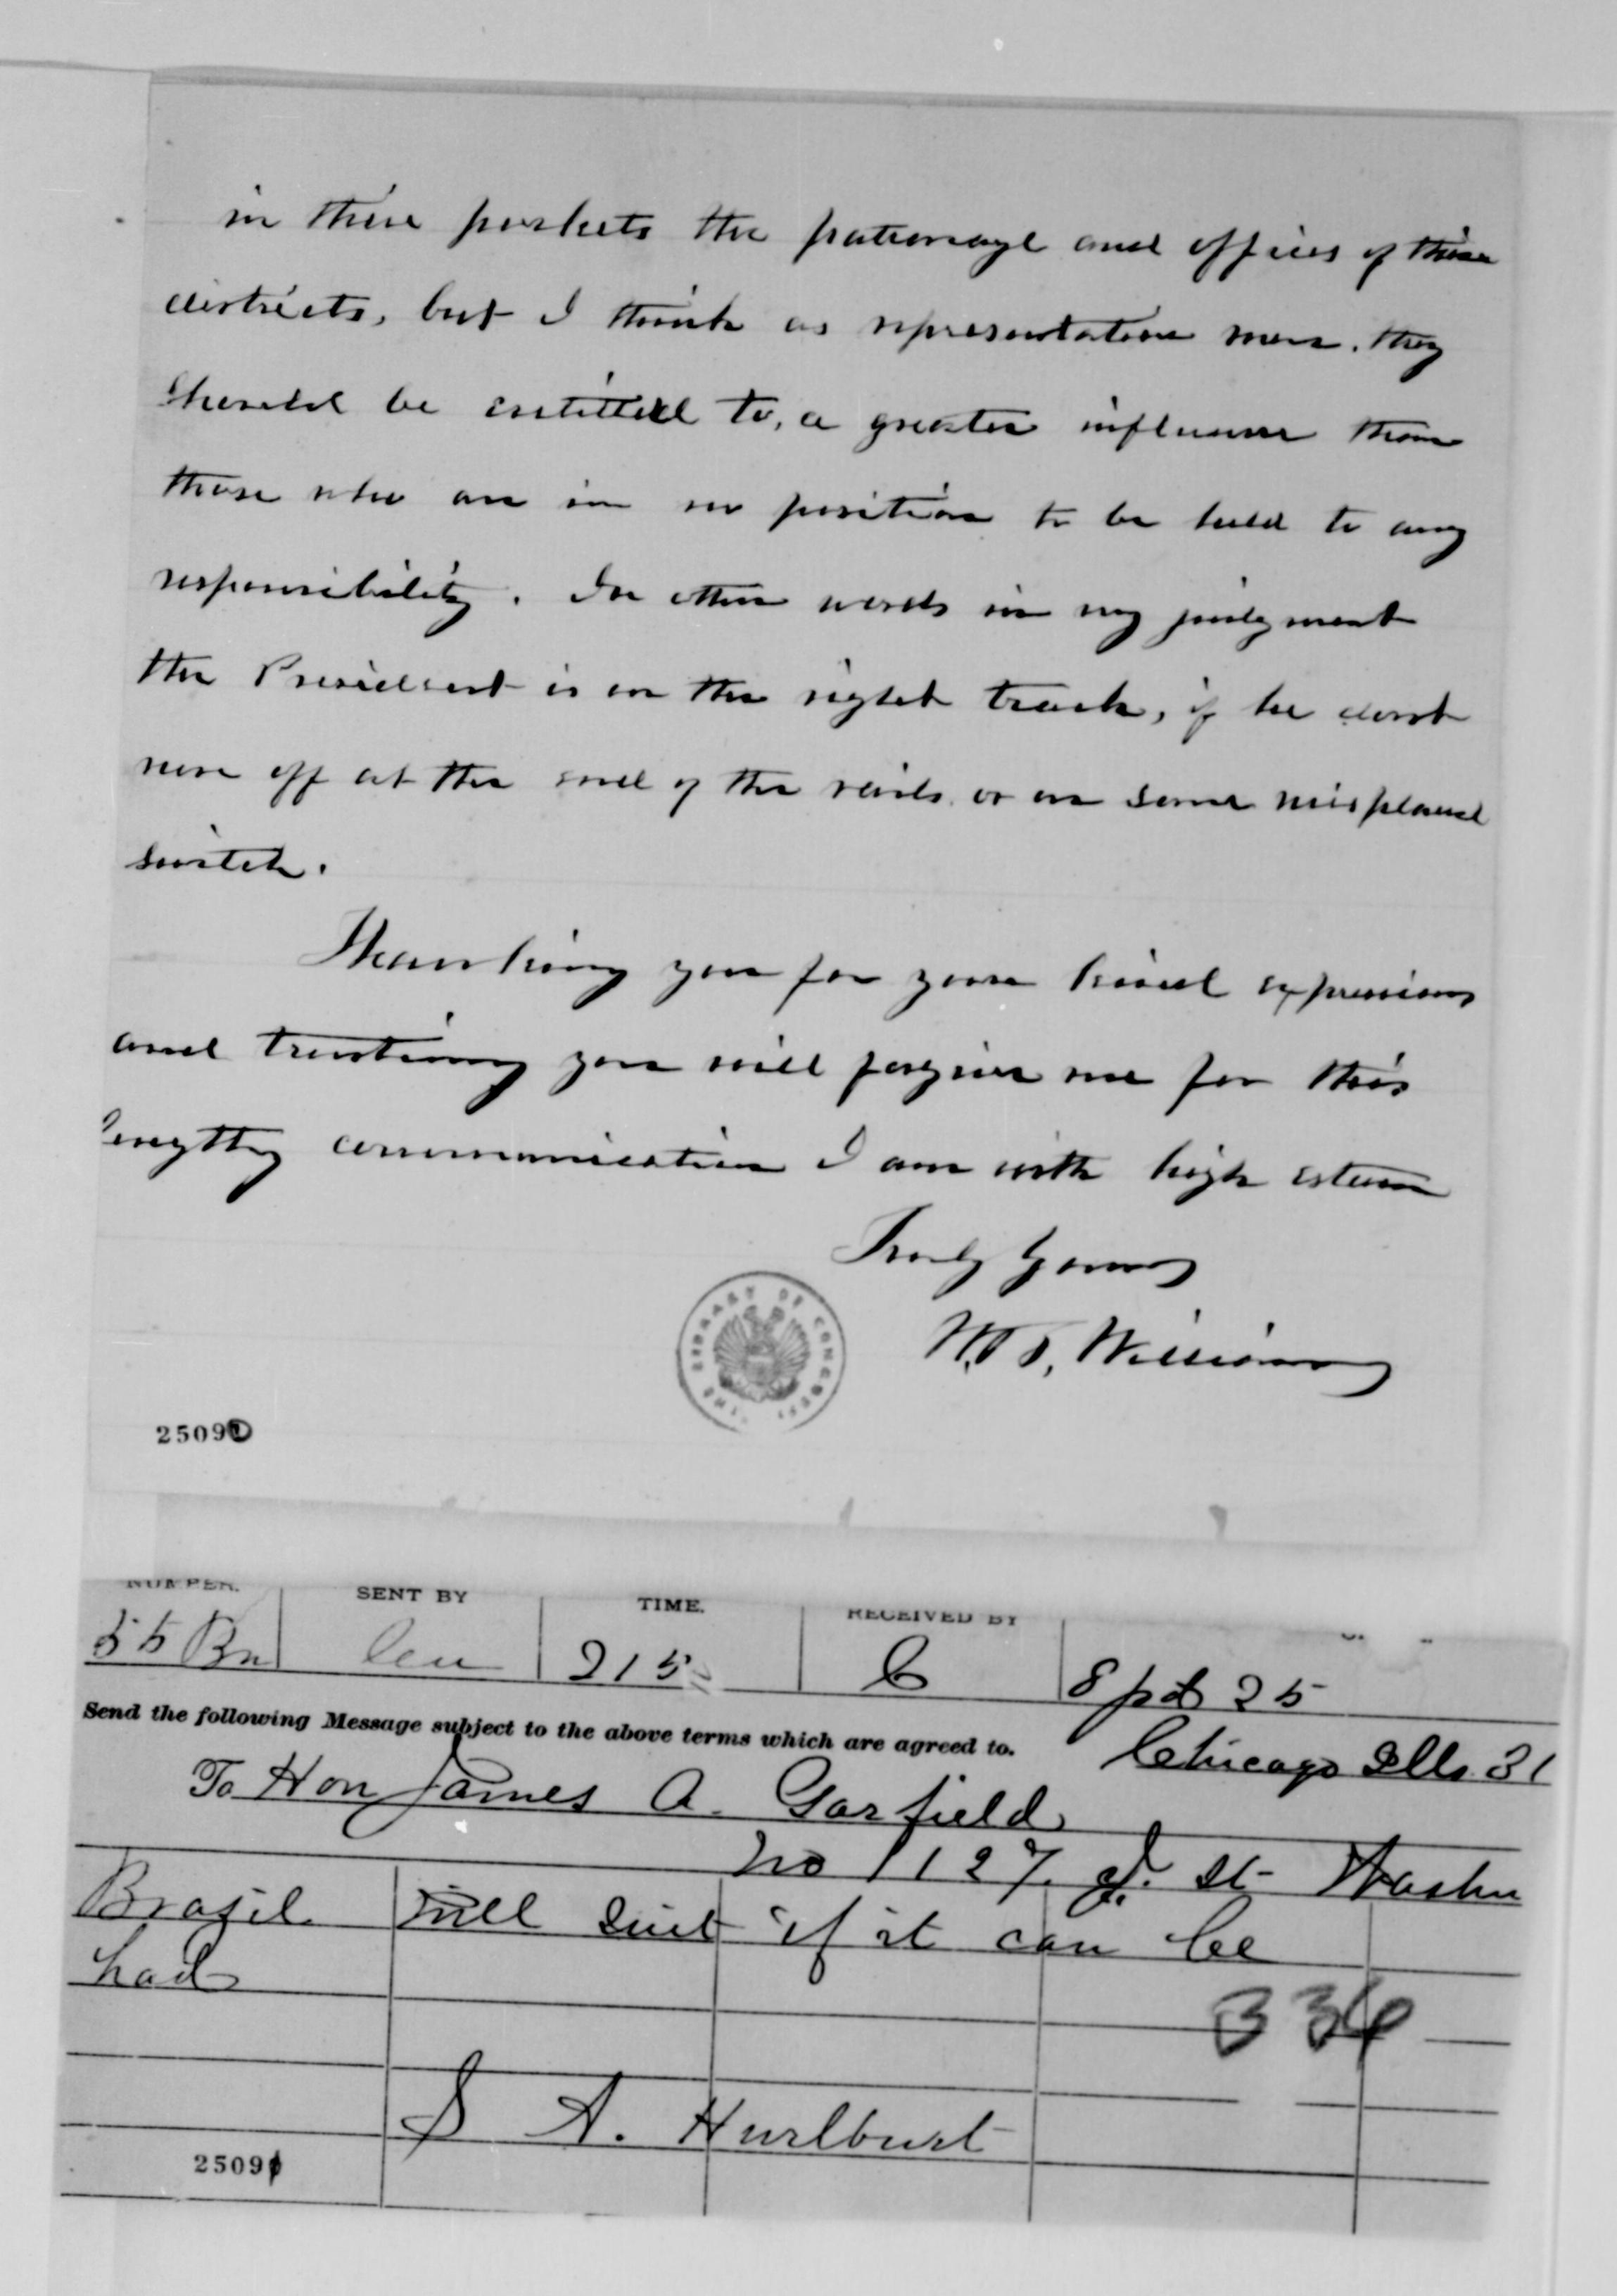 in their pockets the patronage and offices of their
districts, but I think as representative men, they
should be entitled to, a greater influence than
those who are in no position to be held to any
responsibility. In other words in my judgment
the President is on the right track, if he dont
run off at the end of the rails or on some misplaced
switch.
Thanking you for your kind expressions
and trusting you will forgive me for this
lengthy communication I am with high esteem
Truly Yours
Williams
THE LIBRARY OF CONGRESS
25090
NUMBER.
SENT BY
TIME.
RECEIVED BY
55 Bn
215
C
8 pd 25
Send the following Message subject to the above terms which are agreed to.
Chicago Ills 31
To Hon James A. Garfield
No 1127. I. St Washn
Brazil will suit if it can be
had
334
S A. Hurlburt
25091